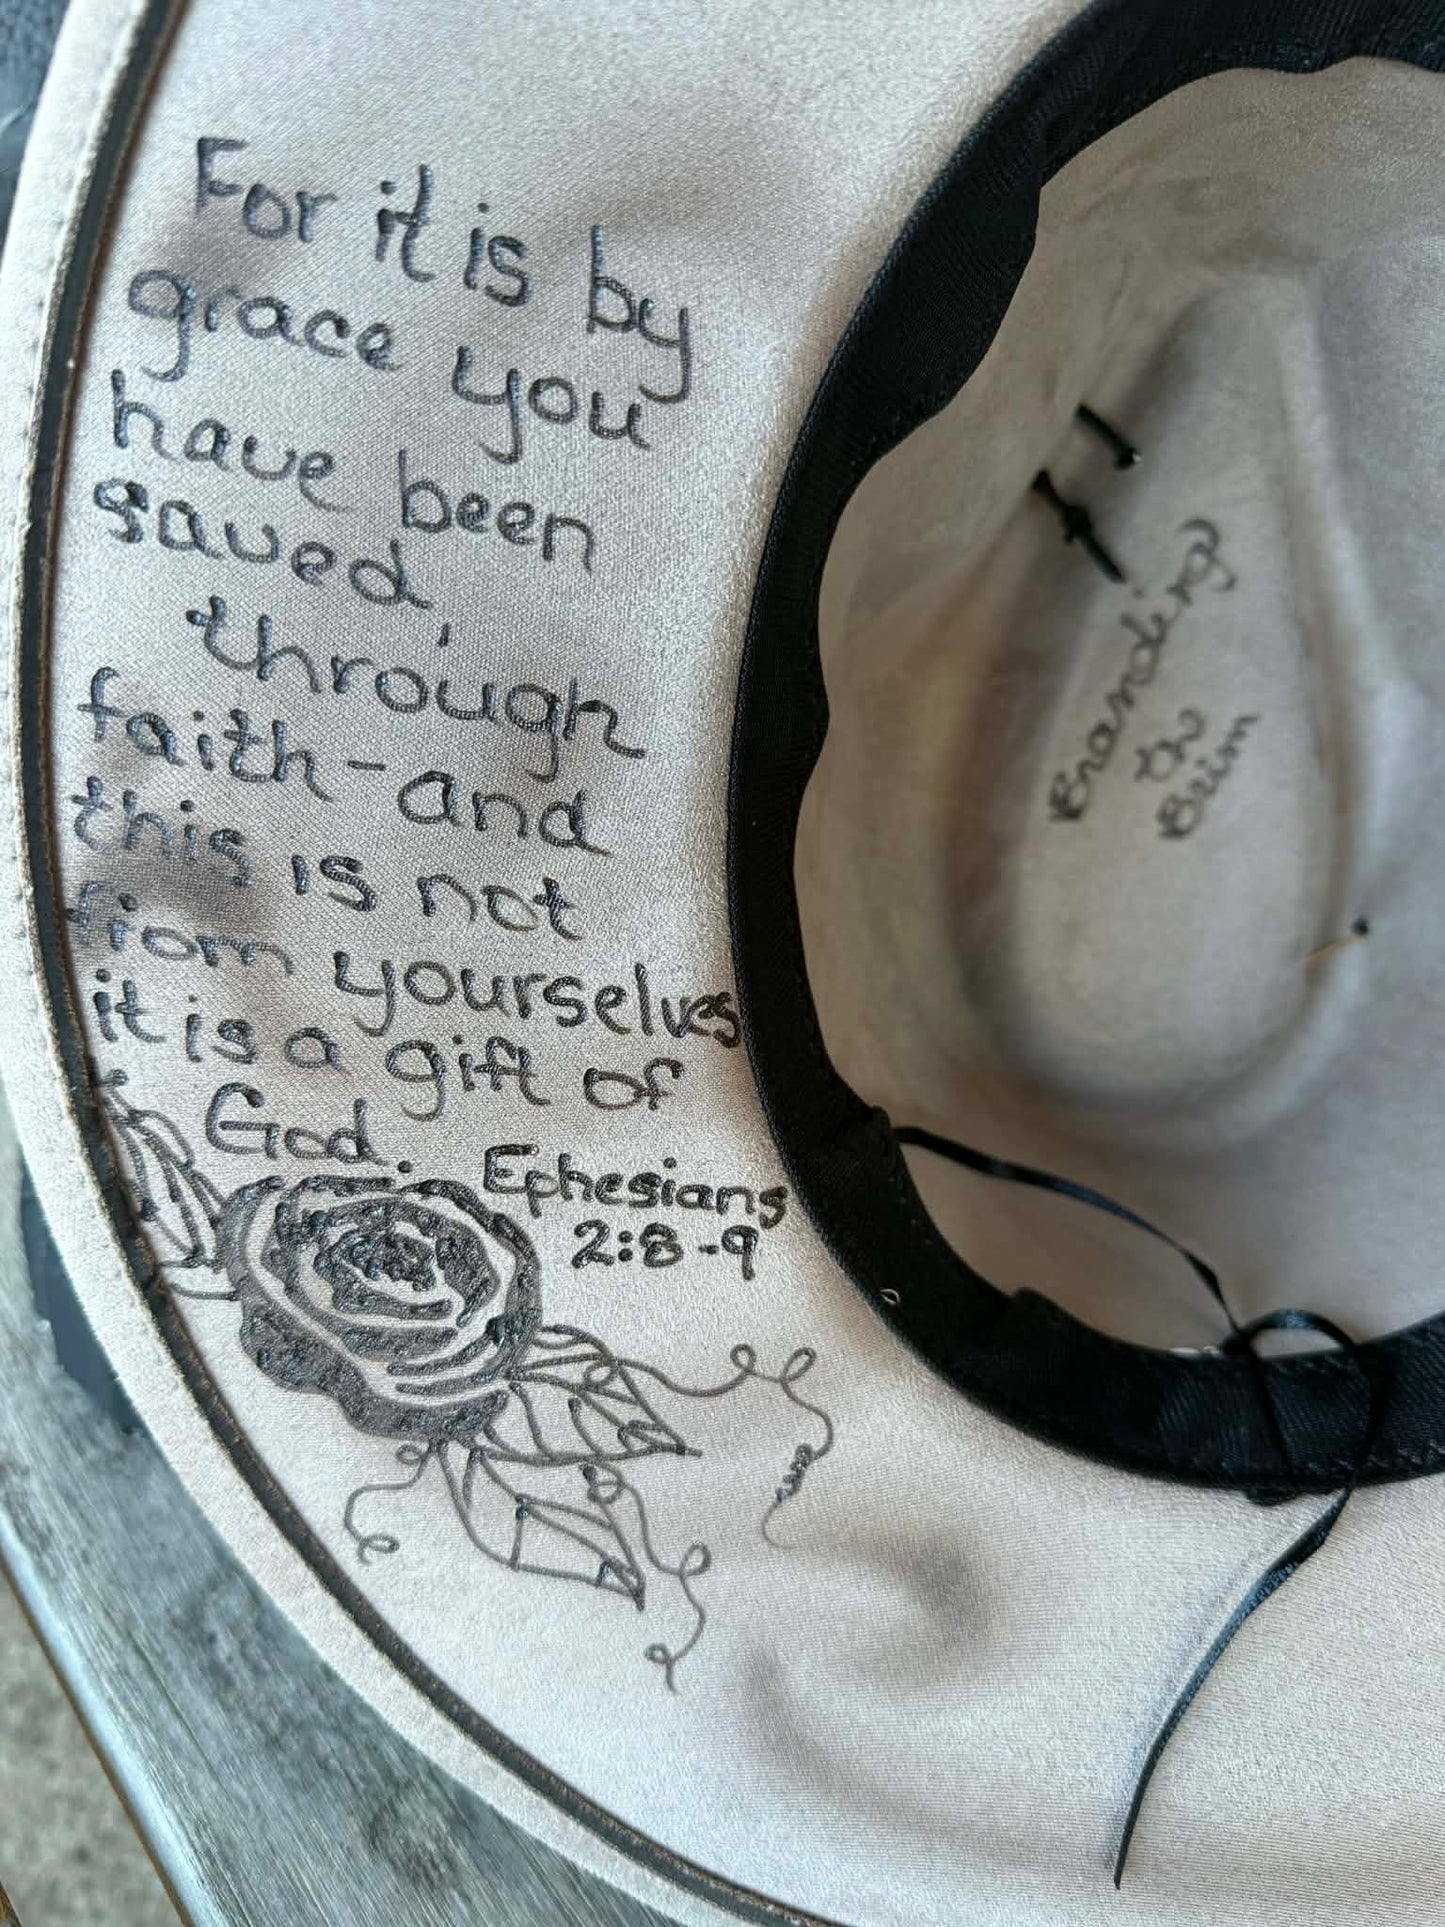 For it is by
grace you
have been
saved,
through
faith - and
this is not
from yourselves
it is a gift of
God.
Ephesians
2:8-9
Branding
th
Brim